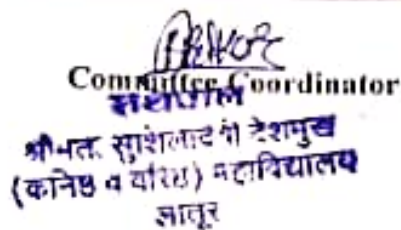 Committee Coordinator
ग्रंथपाल
श्रीमती सुशिलादेवी देशमुख
(कनिष्ठ व वरिष्ठ) महाविद्यालय
लातूर